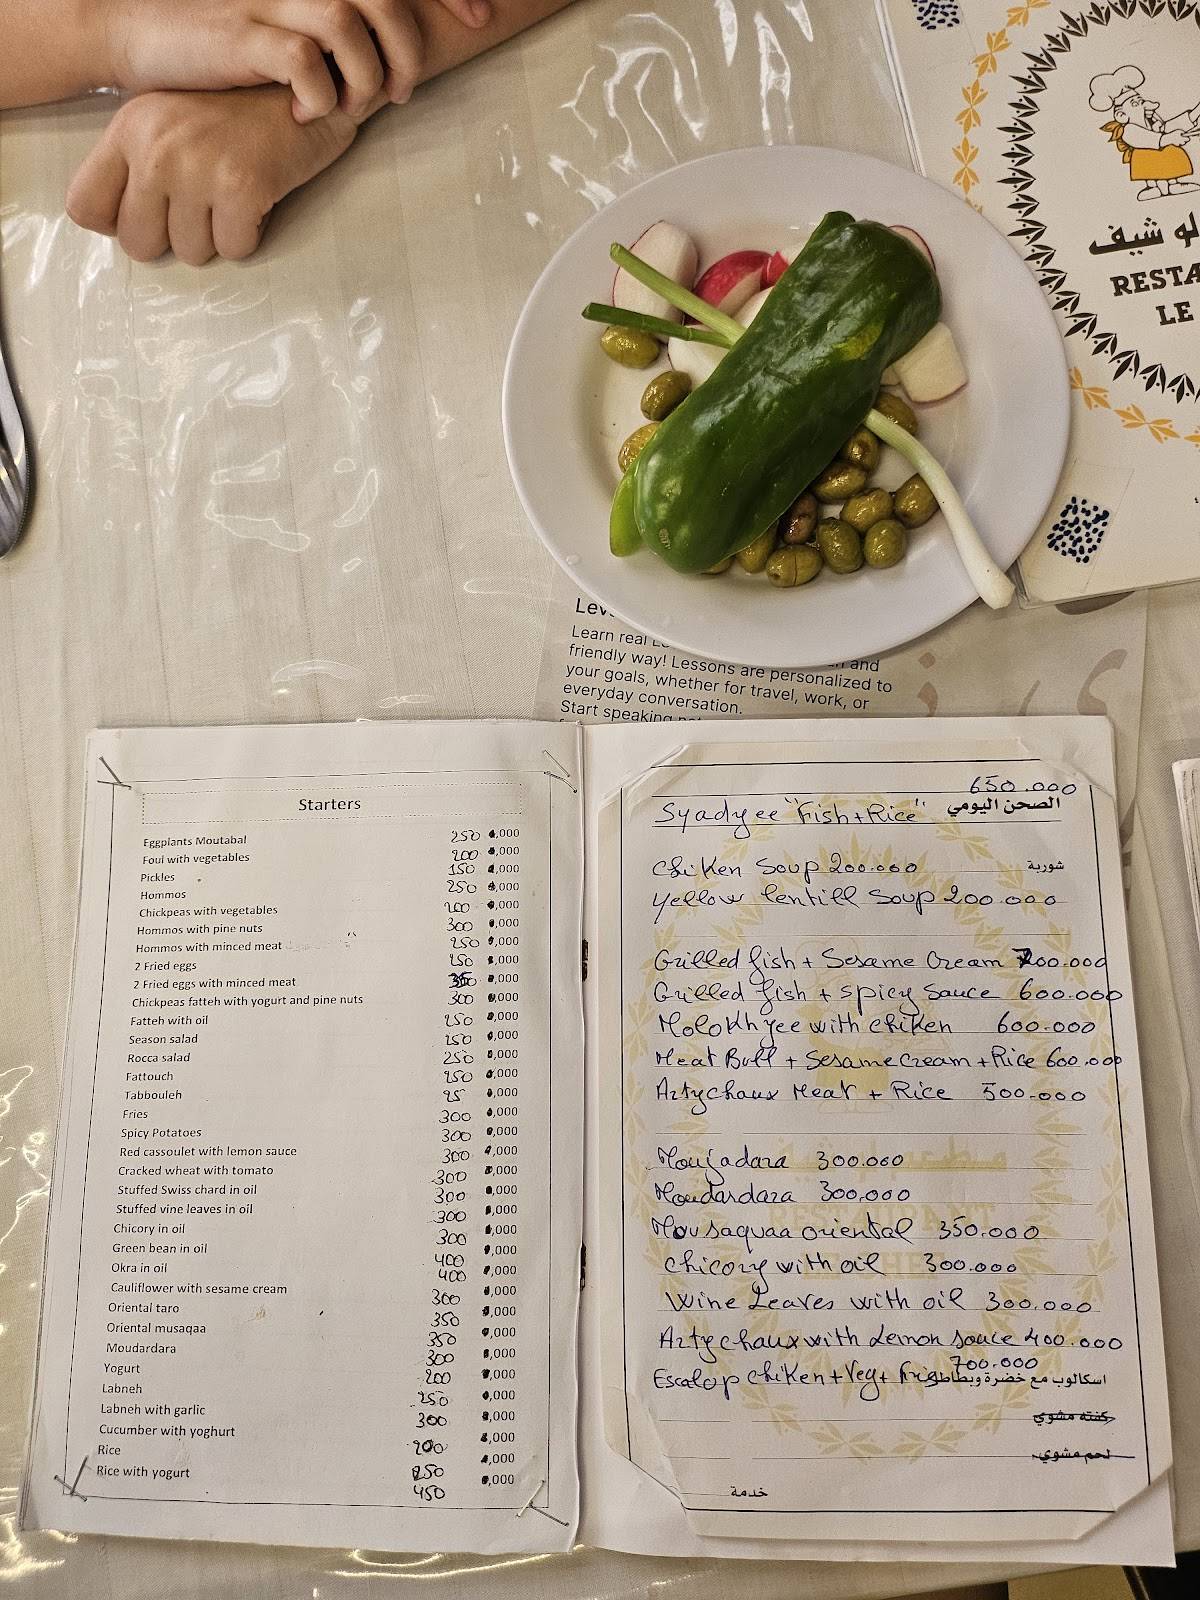 لو شيف
RESTA
LE
Lev
Learn real
friendly way! Lessons are and
your goals, whether for personalized to
everyday conversation. travel, work, or
Start speaking
Starters
Eggplants Moutabal 250 ,000
Foul with vegetables 200 ,000
Pickles 150 ,000
Hommos 250 ,000
Chickpeas with vegetables 200 ,000
Hommos with pine nuts 300 ,000
Hommos with minced meat 250 ,000
2 Fried eggs 250 ,000
2 Fried eggs with minced meat 350 ,000
Chickpeas fatteh with yogurt and pine nuts 300 ,000
Fatteh with oil 250 ,000
Season salad 250 ,000
Rocca salad 250 ,000
Fattouch 250 ,000
Tabbouleh 25 ,000
Fries 300 ,000
Spicy Potatoes 300 ,000
Red cassoulet with lemon sauce 300 ,000
Cracked wheat with tomato 300 ,000
Stuffed Swiss chard in oil 300 ,000
Stuffed vine leaves in oil 300 ,000
Chicory in oil 300 ,000
Green bean in oil 400 ,000
Okra in oil 400 ,000
Cauliflower with sesame cream 300 ,000
Oriental taro 350 ,000
Oriental musaqaa 350 ,000
Moudardara 300 ,000
Yogurt 200 ,000
Labneh 250 ,000
Labneh with garlic 300 ,000
Cucumber with yoghurt 200 ,000
Rice 250 ,000
Rice with yogurt 450 ,000
650.000
Syadyee "Fish+Rice" الصحن اليومي
Chiken Soup 200.000 شوربة
Yellow lentill Soup 200.000
Grilled fish + Sesame Cream 700.000
Grilled fish + spicy sauce 600.000
Molokhyee with chiken 600.000
Meat Boll + Sesame cream + Rice 600.000
Artychaux Meat + Rice 500.000
Moujadara 300.000
Moudardara 300.000
Mousaquaa oriental 350.000
Chicory with oil 300.000
Wine Leaves with oil 300.000
Artychaux with Lemon sauce 400.000
700.000
Escalop chiken + Veg + اسكالوب مع خضرة وبطاطا
كفته مشوي
لحم مشوي
خدمة